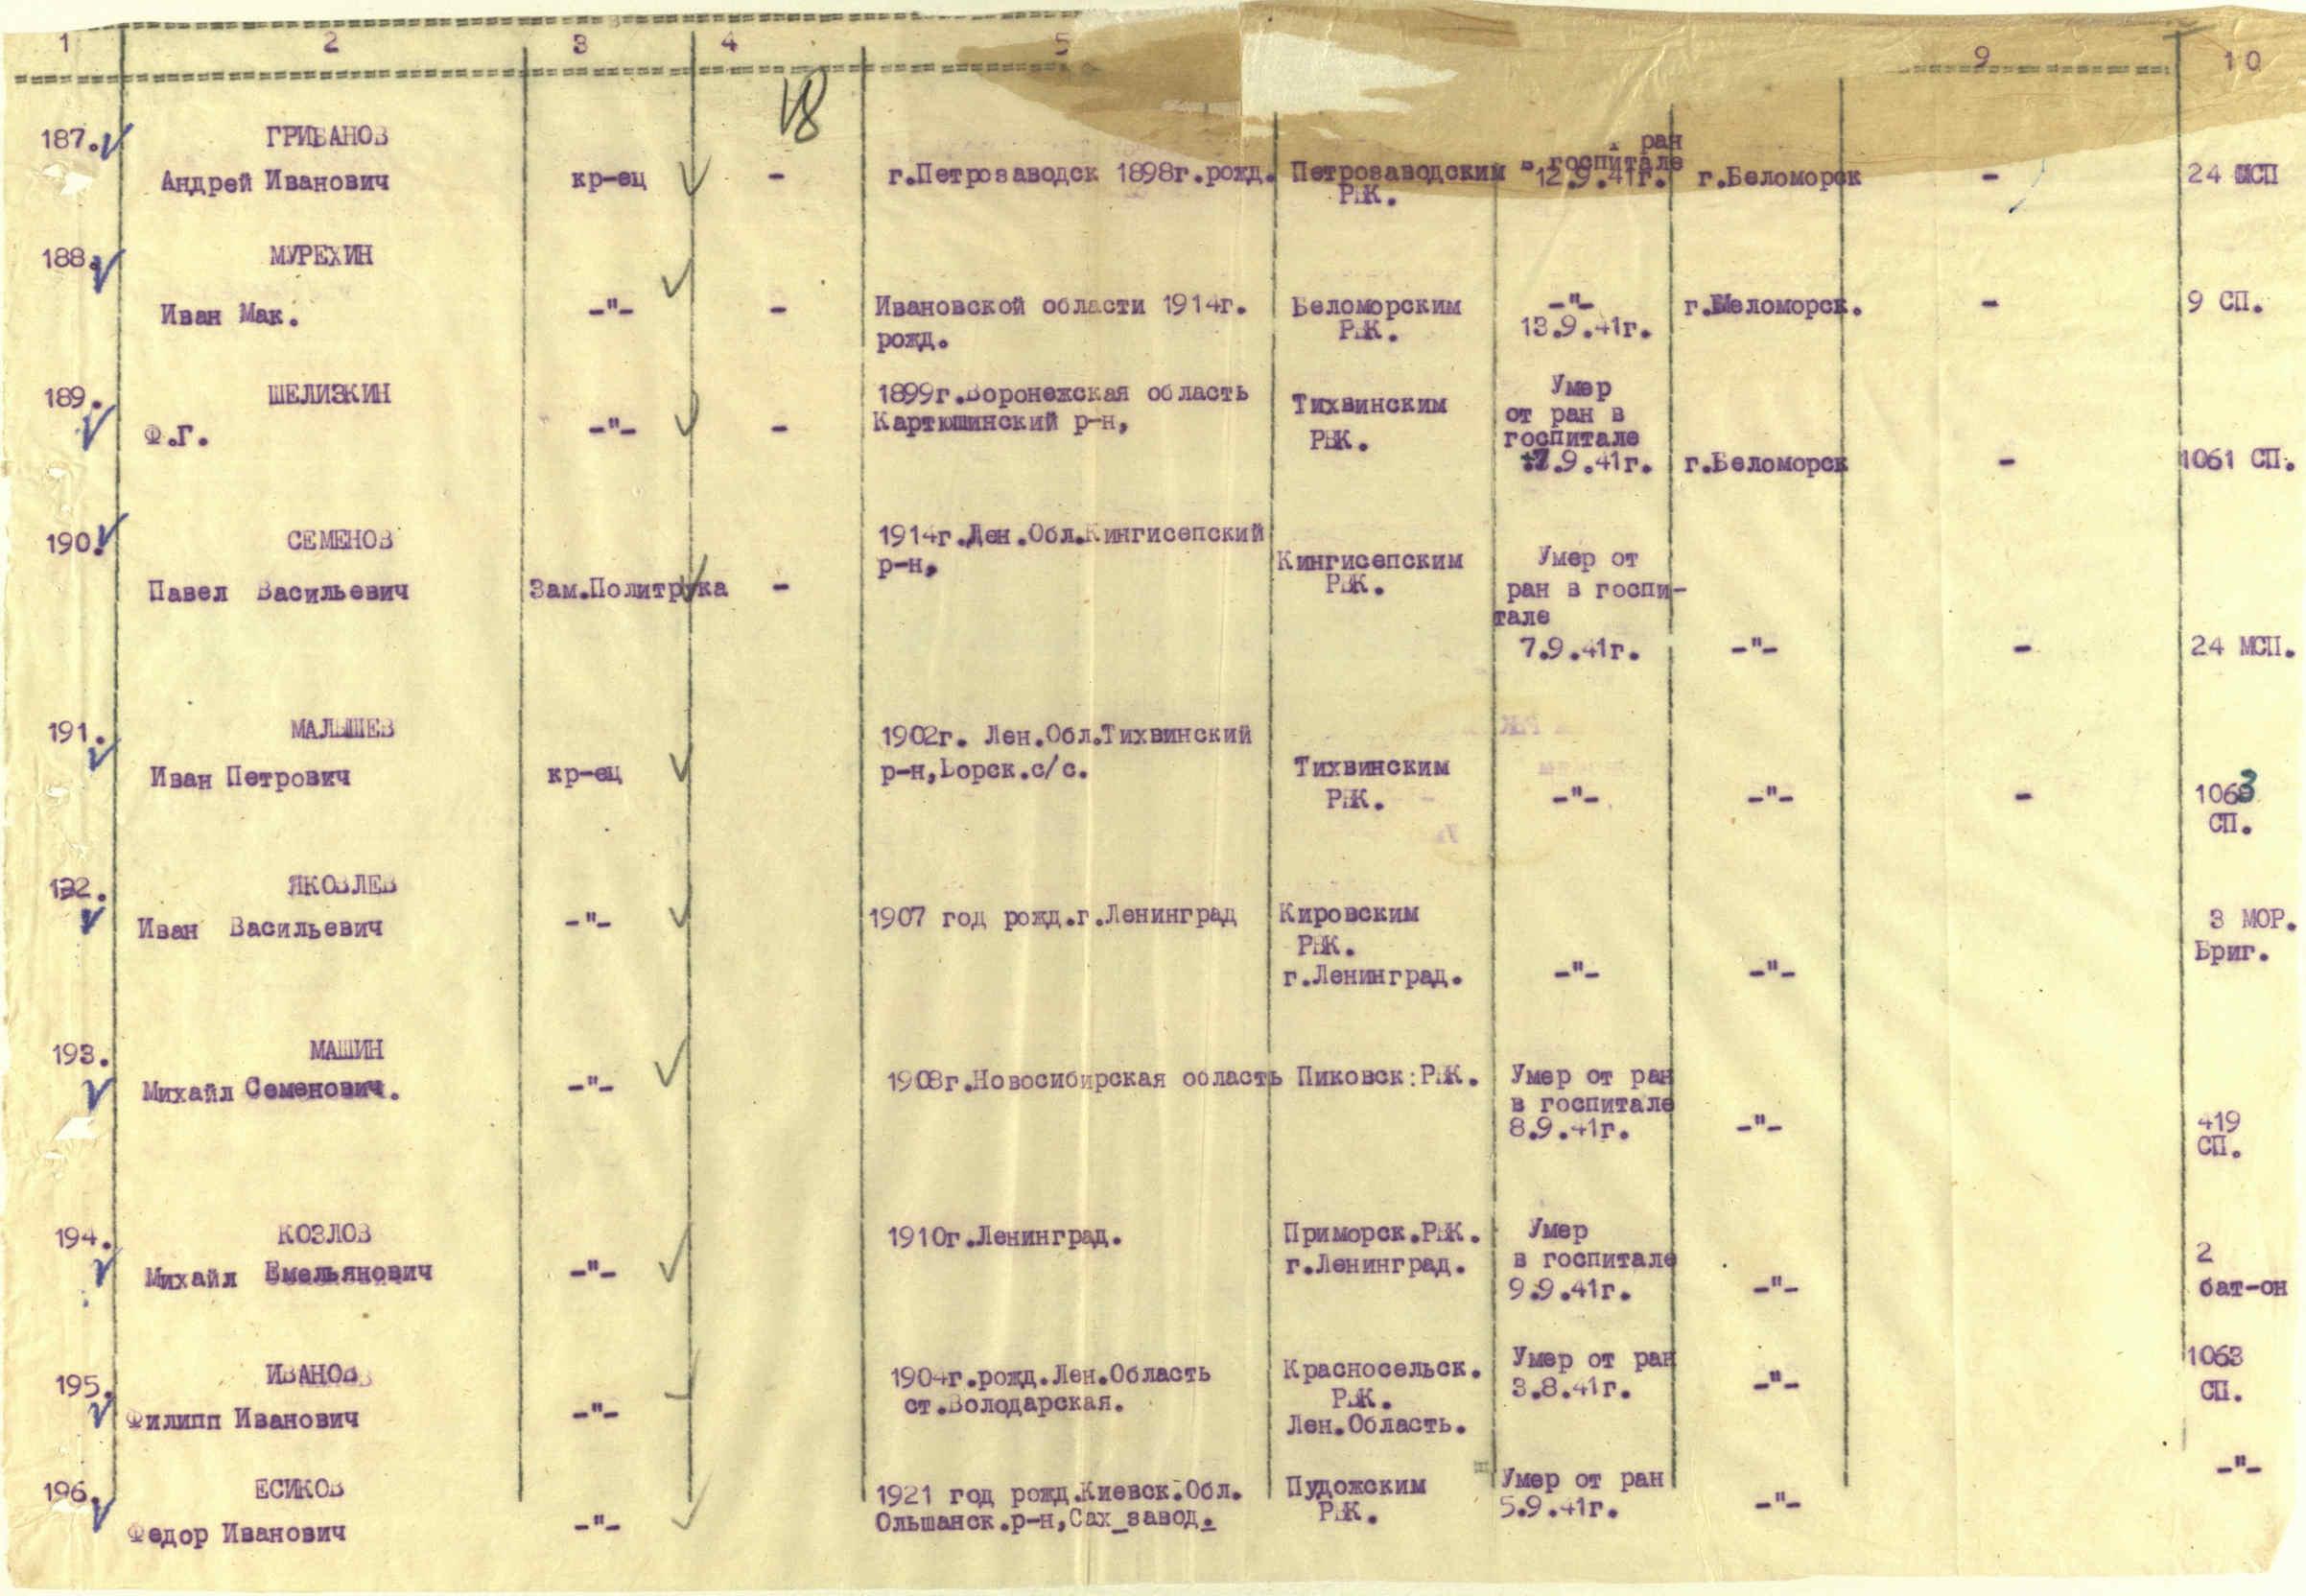 1 2 3 4 5 9 10
18
187. ГРИБАНОВ
Андрей Иванович кр-ец - г.Петрозаводск 1898г.рожд. Петрозаводским РВК. ран в госпитале 12.9.41г. г.Беломорск - 24 МСП
188. МУРЕХИН
Иван Мак. -"- - Ивановской области 1914г. рожд. Беломорским РВК. -"- 13.9.41г. г.Беломорск. - 9 СП.
189. ШЕЛИЗКИН
Ф.Г. -"- - 1899г.Воронежская область Картюшинский р-н, Тихвинским РВК. Умер от ран в госпитале 7.9.41г. г.Беломорск - 1061 СП.
190. СЕМЕНОВ
Павел Васильевич Зам.Политрука - 1914г.Лен.Обл.Кингисепский р-н, Кингисепским РВК. Умер от ран в госпи-тале 7.9.41г. -"- - 24 МСП.
191. МАЛЫШЕВ
Иван Петрович кр-ец 1902г. Лен.Обл.Тихвинский р-н,Борск.с/с. Тихвинским РВК. -"- -"- - 1063 СП.
192. ЯКОВЛЕВ
Иван Васильевич -"- 1907 год рожд.г.Ленинград Кировским РВК. г.Ленинград. -"- -"- 3 МОР. Бриг.
193. МАШИН
Михайл Семенович. -"- 1908г.Новосибирская область Пиковск:РВК. Умер от ран в госпитале 8.9.41г. -"- 419 СП.
194. КОЗЛОВ
Михайл Емельянович -"- 1910г.Ленинград. Приморск.РВК. г.Ленинград. Умер в госпитале 9.9.41г. -"- 2 бат-он
195. ИВАНОВ
Филипп Иванович -"- 1904г.рожд.Лен.Область ст.Володарская. Красносельск. РВК. Лен.Область. Умер от ран 3.8.41г. -"- 1063 СП.
196. ЕСИКОВ
Федор Иванович -"- 1921 год рожд.Киевск.Обл. Ольшанск.р-н,Сах_завод. Пудожским РВК. Умер от ран 5.9.41г. -"- -"-